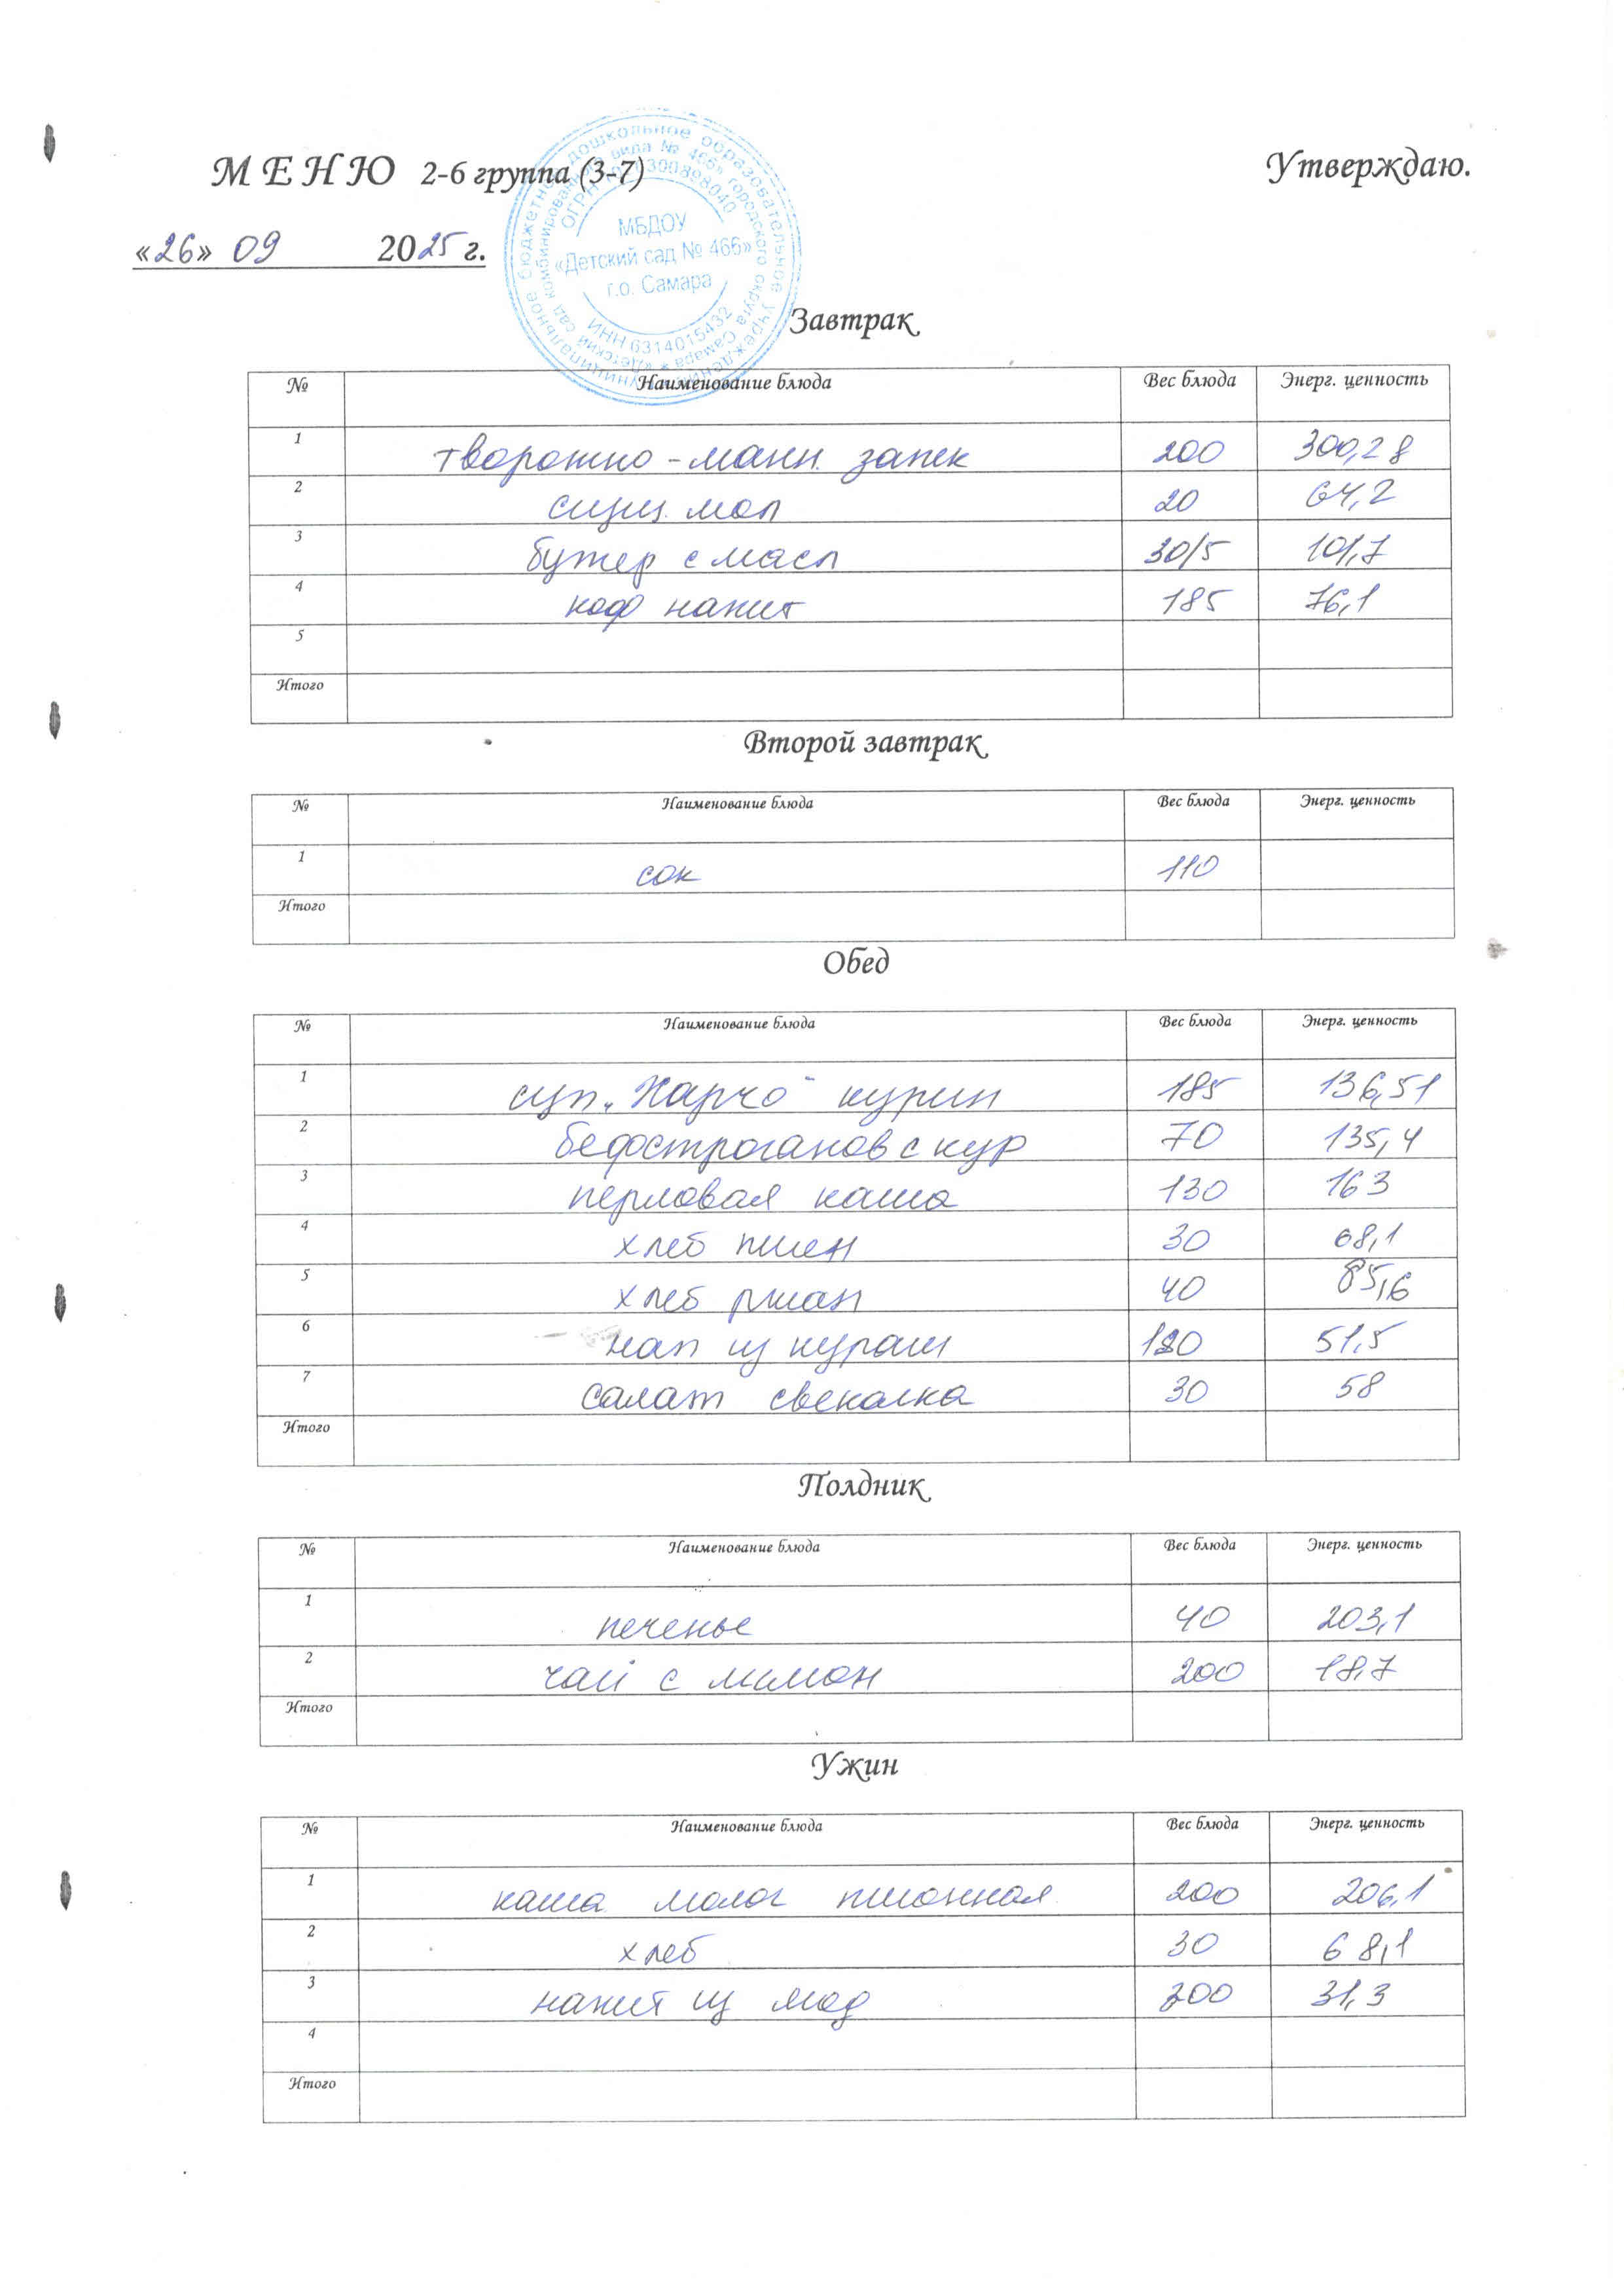 МЕНЮ 2-6 группа (3-7) Утверждаю.
«26» 09 2025 г.
МБДОУ
«Детский сад № 466»
г.о. Самара
ИНН 6314015432
Завтрак
№ Наименование блюда Вес блюда Энерг. ценность
1 творожно-манн. запек 200 300,28
2 сгущ. мол 20 64,2
3 бутер с масл 30/5 101,7
4 коф напит 185 76,1
5
Итого
Второй завтрак
№ Наименование блюда Вес блюда Энерг. ценность
1 сок 110
Итого
Обед
№ Наименование блюда Вес блюда Энерг. ценность
1 суп „Харчо“ курин 185 136,51
2 бефстроганов с кур 70 135,4
3 перловая каша 130 163
4 хлеб пшен 30 68,1
5 хлеб ржан 40 85,6
6 нап из кураги 180 51,5
7 салат свеколка 30 58
Итого
Полдник
№ Наименование блюда Вес блюда Энерг. ценность
1 печенье 40 203,1
2 чай с лимон 200 18,7
Итого
Ужин
№ Наименование блюда Вес блюда Энерг. ценность
1 каша молоч пшонная 200 206,1
2 хлеб 30 68,1
3 напит из 200 31,3
4
Итого